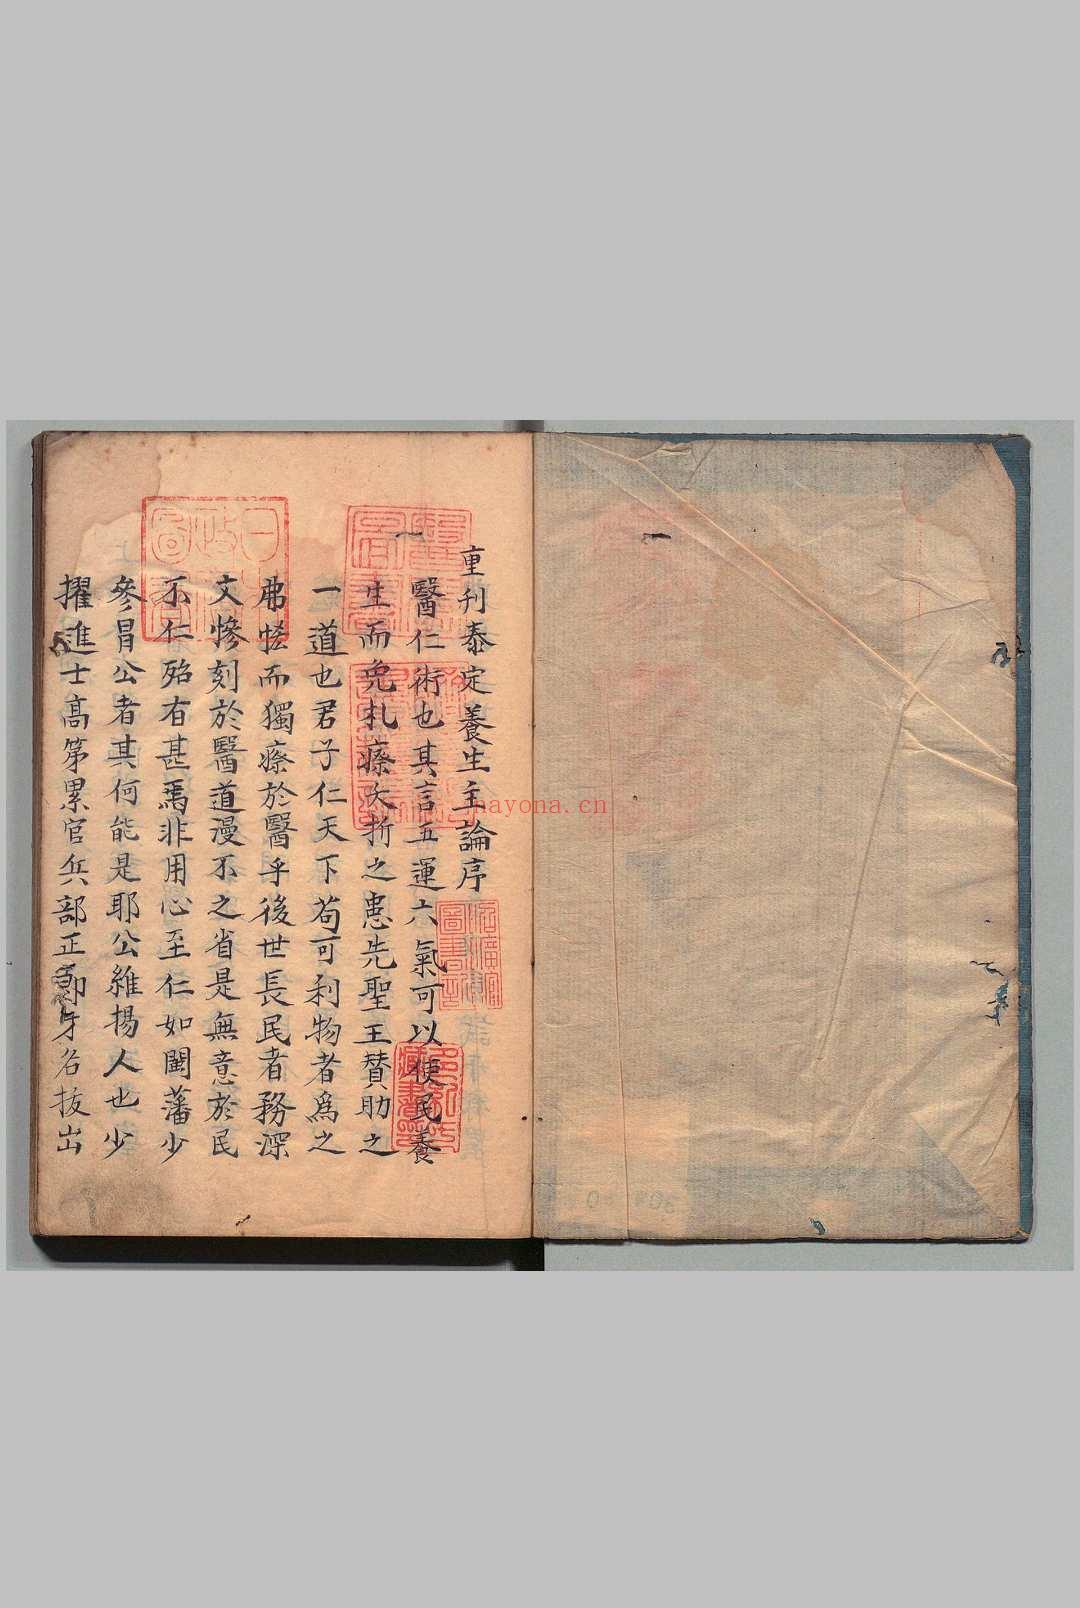 重刊泰定養生主論序
醫仁術也其言五運六氣可以使民養
生而免札瘵夭折之患先聖王賛助之
一道也君子仁天下苟可利物者為之
弗恡而獨瘵於醫乎後世長民者務深
文慘刻於醫道漫不之省是無意於民
不仁殆有甚焉非用心至仁如閫藩少
參冒公者其何能是耶公維揚人也少
擢進士高第累官兵部正郎才名拔出
nayona.cn